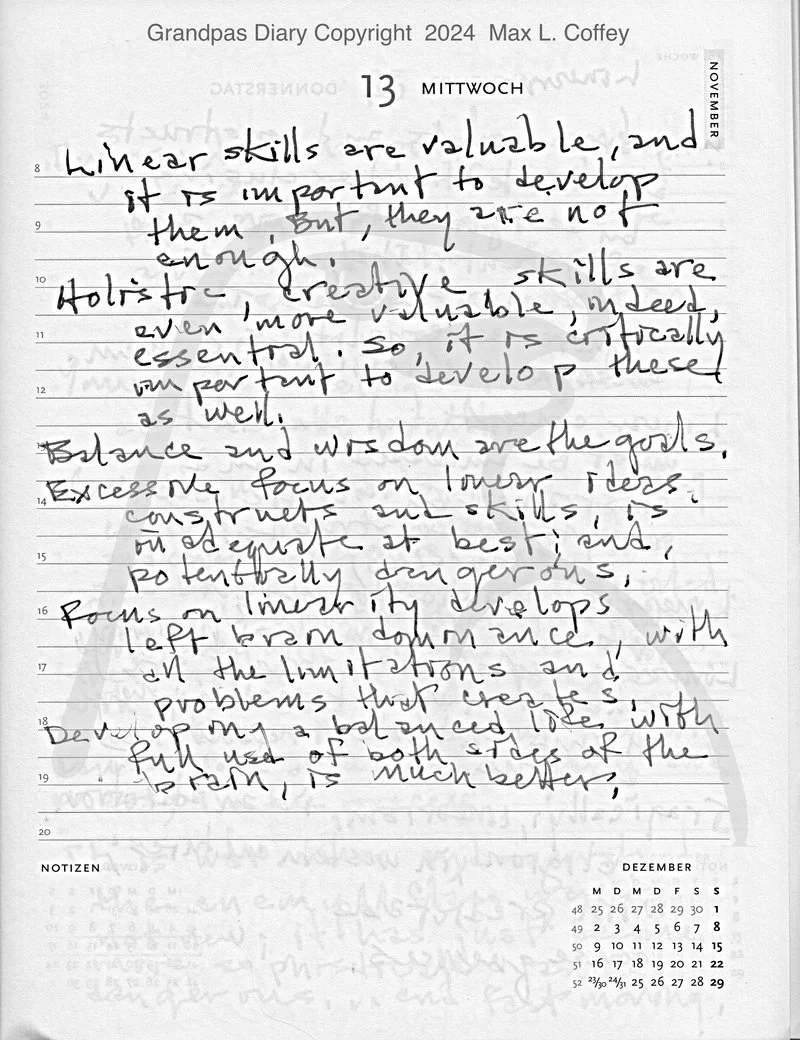 Grandpas Diary Copyright 2024 Max L. Coffey
13 MITTWOCH
NOVEMBER
8 Linear skills are valuable, and
it is important to develop
9 them. But, they are not
enough.
10 Holistic, creative skills are
even more valuable, indeed,
11 essential. So, it is critically
important to develop these
12 as well.
Balance and wisdom are the goals.
Excessive focus on linear ideas,
14 constructs and skills, is
inadequate at best; and,
15 potentially dangerous.
16 Focus on linearity develops
left brain dominance, with
17 all the limitations and
problems that creates.
18 Developing a balanced life with
full use of both sides of the
19 brain, is much better.
20
NOTIZEN
DEZEMBER
M D M D F S S
48 25 26 27 28 29 30 1
49 2 3 4 5 6 7 8
50 9 10 11 12 13 14 15
51 16 17 18 19 20 21 22
52 23/30 24/31 25 26 27 28 29